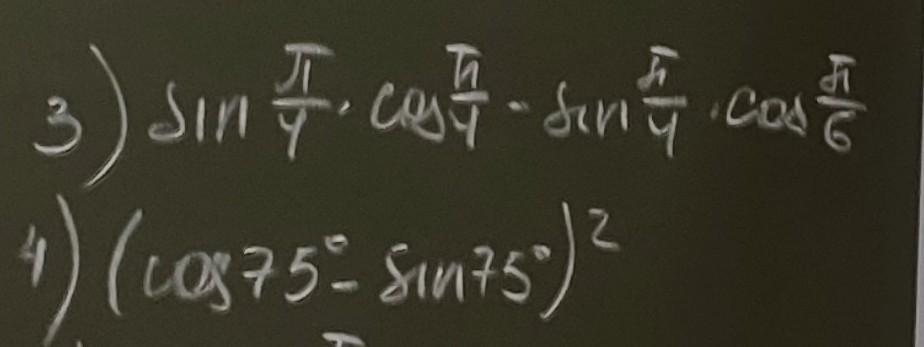 3) sin π/4 · cos π/4 - sin π/4 · cos π/6
4) (cos75° - sin75°)²